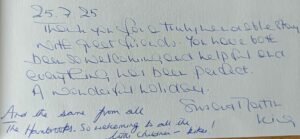 25.7.25
Thank you for a truly memorable stay
with great friends. You have both
been so welcoming and helpful and
everything has been perfect.
A wonderful holiday.
And the same from all
The So welcoming to all the